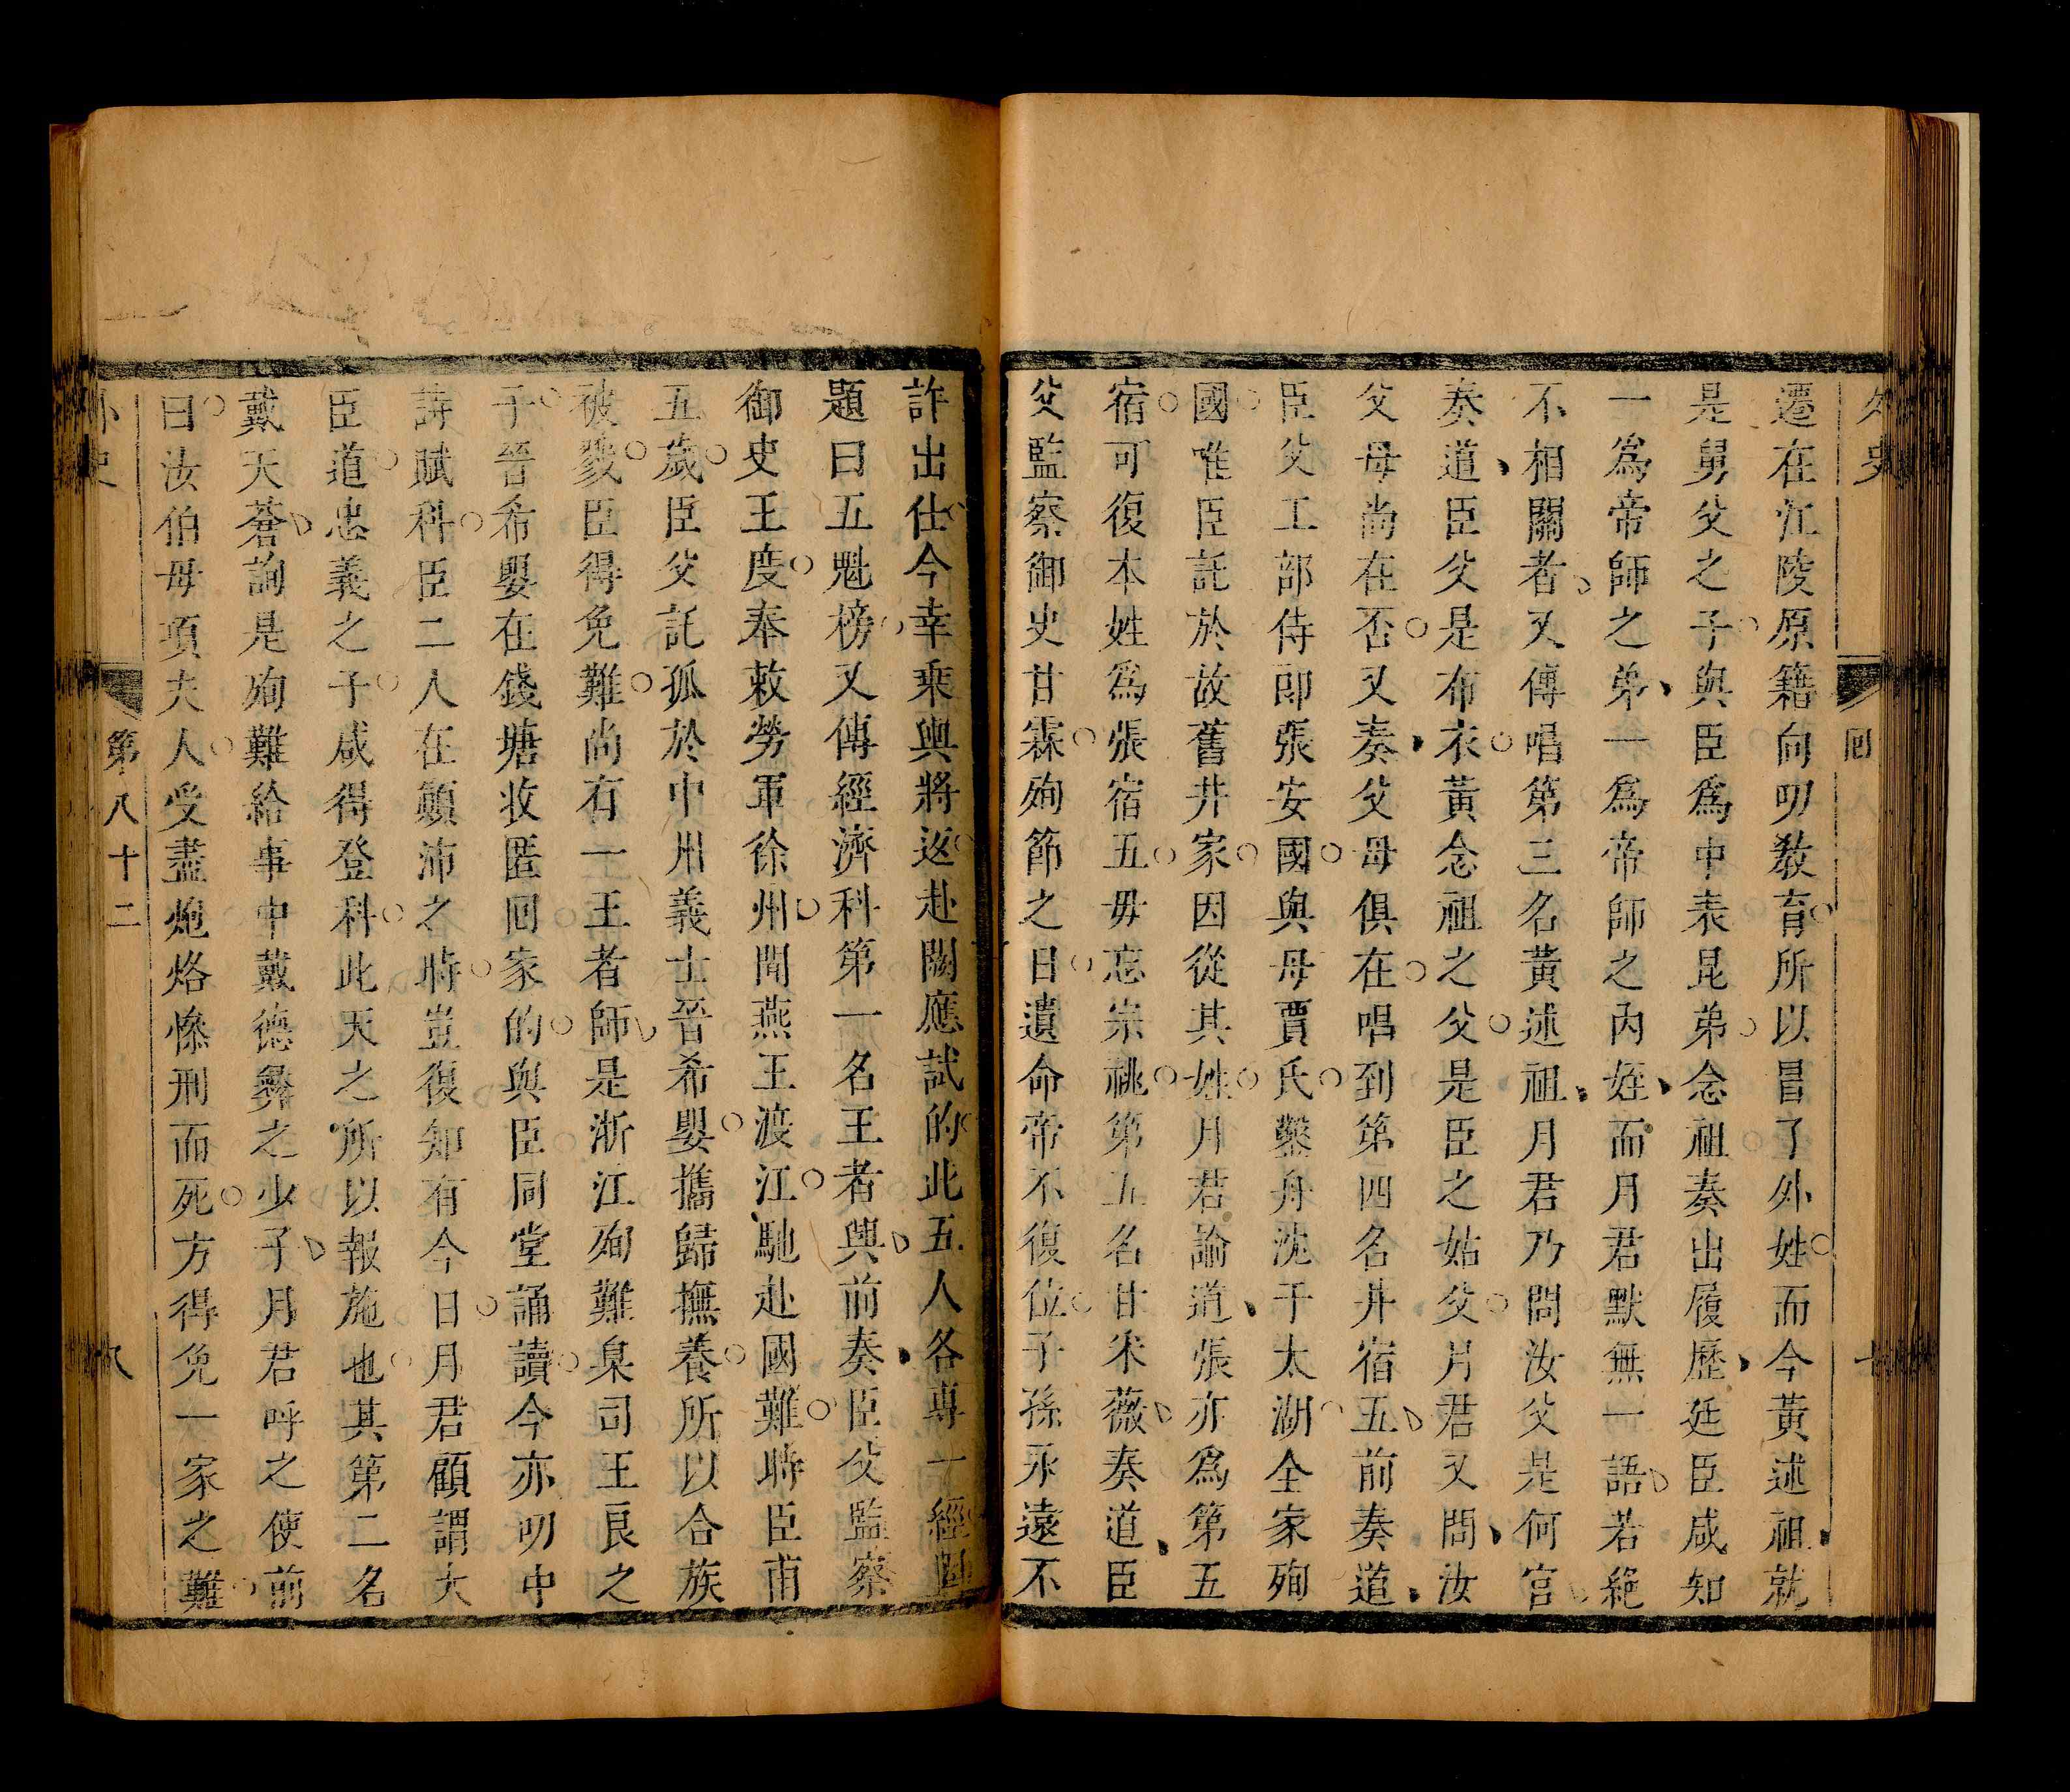 外史
回
七
遷在江陵原籍向叨敎育所以冒了外姓而今黃述祖就
是舅父之子與臣爲中表昆弟念祖奏出履歷廷臣咸知
一爲帝師之弟一爲帝師之內姪而月君默無一語若絶
不相關者又傳唱第三名黃述祖月君乃問汝父是何官
奏道臣父是布衣黃念祖之父是臣之姑父月君又問汝
父母尚在否又奏父母俱在唱到第四名井宿五前奏道
臣父工部侍郎張安國與母賈氏鑿舟沈于太湖全家殉
國唯臣託於故舊井家因從其姓月君諭道張亦爲第五
宿可復本姓爲張宿五毋忘宗祧第五名甘采薇奏道臣
父監察御史甘霖殉節之日遺命帝不復位子孫永遠不
許出仕今幸乘輿將返赴闕應試的此五人各專一經
題曰五魁榜又傳經濟科第一名王者輿前奏臣父監察
御史王度奉敕勞軍徐州聞燕王渡江馳赴國難時臣甫
五歲臣父託孤於中州義士晉希嬰攜歸撫養所以合族
被戮臣得免難尚有一王者師是浙江殉難臬司王良之
子晉希嬰在錢塘收匿回家的與臣同堂誦讀今亦叨中
詩賦科臣二人在顛沛之時豈復知有今日月君顧謂大
臣道忠義之子咸得登科此天之所以報施也其第二名
戴天蒼詢是殉難給事中戴德彝之少子月君呼之使前
曰汝伯母項夫人受盡炮烙慘刑而死方得免一家之難
外史
第八十二
八